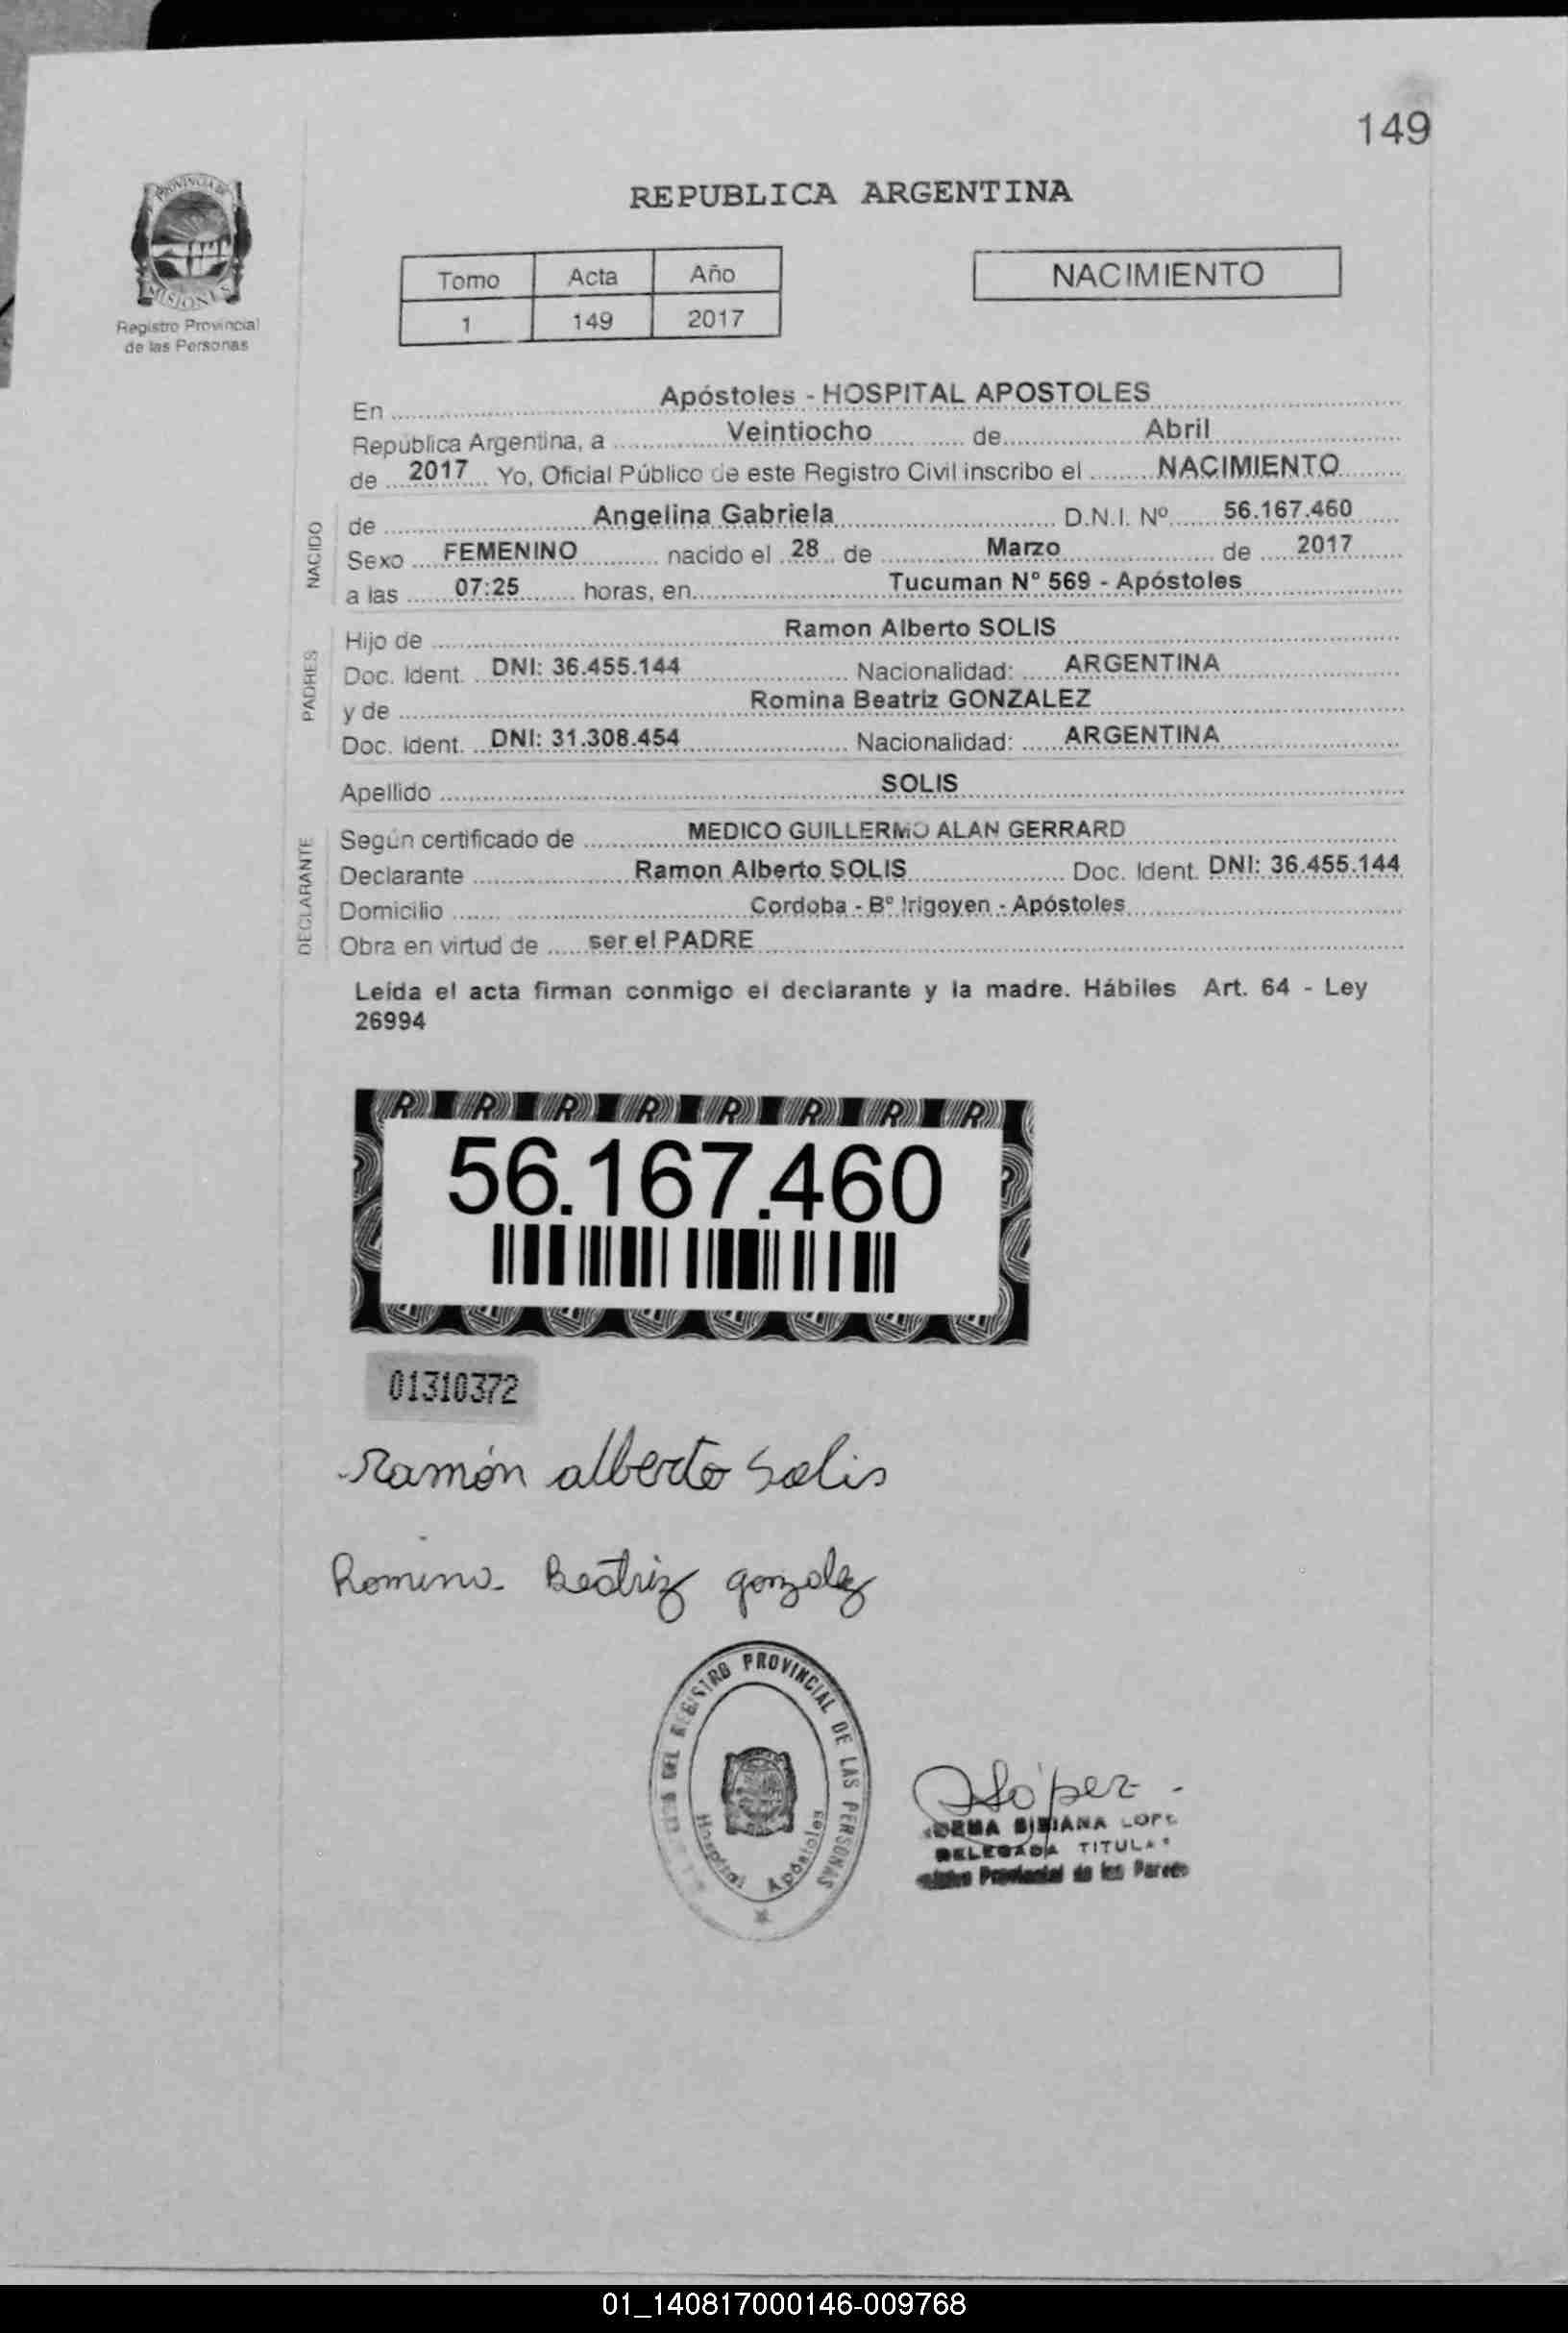 149
PROVINCIA DE
MISIONES
Registro Provincial
de las Personas
REPUBLICA ARGENTINA
Tomo Acta Año
1 149 2017
NACIMIENTO
En Apóstoles - HOSPITAL APOSTOLES
Republica Argentina, a Veintiocho de Abril
de 2017 Yo, Oficial Público de este Registro Civil inscribo el NACIMIENTO
NACIDO
de Angelina Gabriela D.N.I. Nº 56.167.460
Sexo FEMENINO nacido el 28 de Marzo de 2017
a las 07:25 horas, en Tucuman Nº 569 - Apóstoles
PADRES
Hijo de Ramon Alberto SOLIS
Doc. Ident. DNI: 36.455.144 Nacionalidad: ARGENTINA
y de Romina Beatriz GONZALEZ
Doc. Ident. DNI: 31.308.454 Nacionalidad: ARGENTINA
Apellido SOLIS
DECLARANTE
Según certificado de MEDICO GUILLERMO ALAN GERRARD
Declarante Ramon Alberto SOLIS Doc. Ident. DNI: 36.455.144
Domicilio Cordoba - Bº Irigoyen - Apóstoles
Obra en virtud de ser el PADRE
Leida el acta firman conmigo el declarante y la madre. Hábiles Art. 64 - Ley
26994
56.167.460
01310372
Ramón alberto Solis
Romina Beatriz gonzalez
DEL REGISTRO PROVINCIAL DE LAS PERSONAS
Hospital Apóstoles
López
BIBIANA LOPE
DELEGADA TITULAR
Provincial de las
01_140817000146-009768